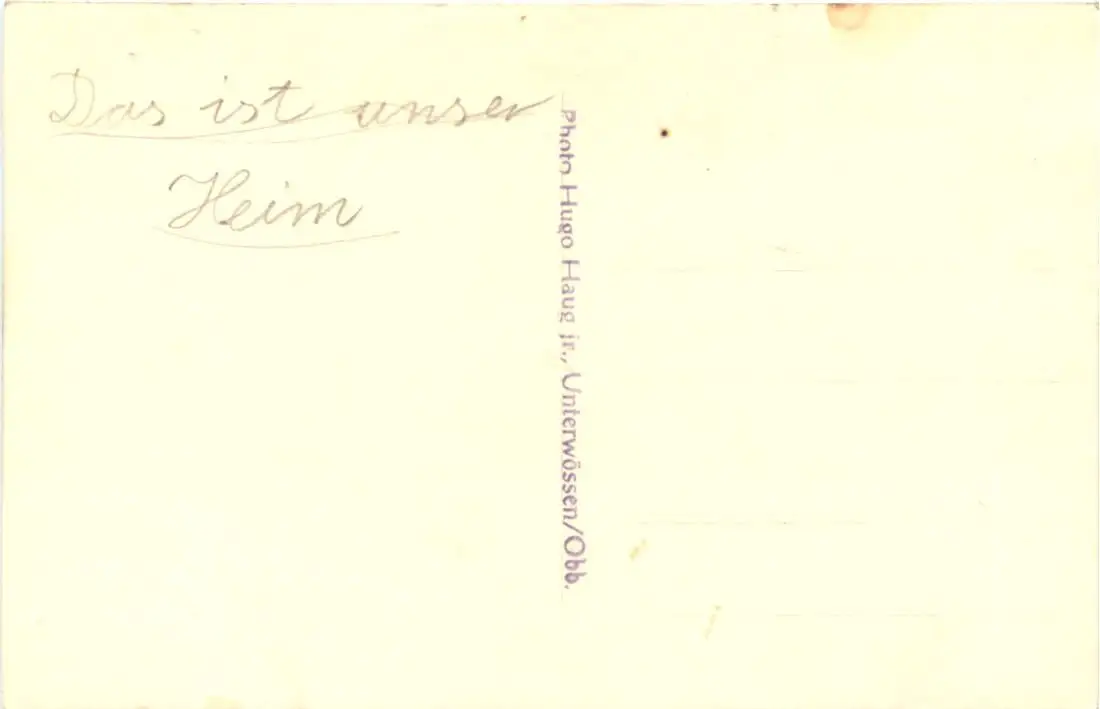 Das ist unser
Heim
Photo Hugo Haug jr., Unterwössen/Obb.